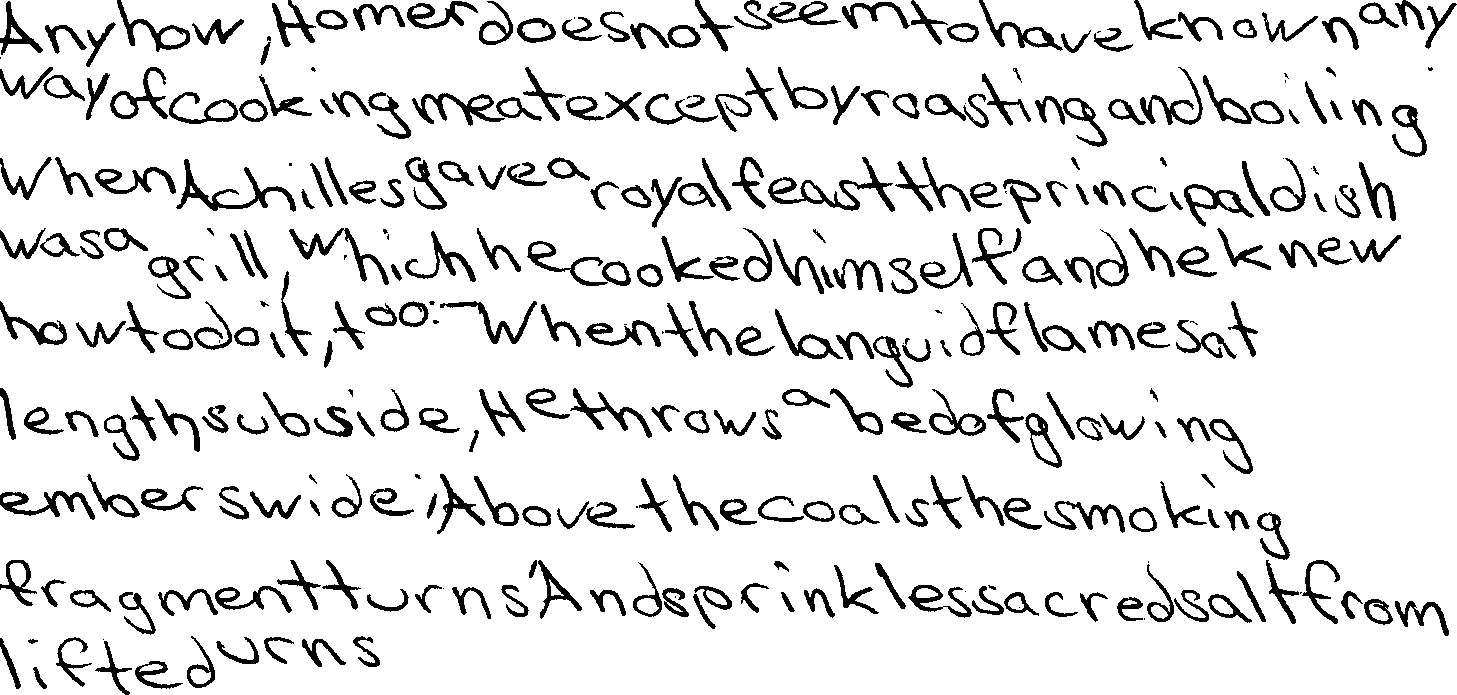 Anyhow, Homer does not seem to have known any
way of cooking meat except by roasting and boiling
When Achilles gave a royal feast the principal dish
was a grill, which he cooked himself' and he knew
how to do it, too:- When the languid flames at
length subside, He throws a bed of glowing
embers wide; Above the coals the smoking
fragment turns' And sprinkles sacred salt from
lifted urns